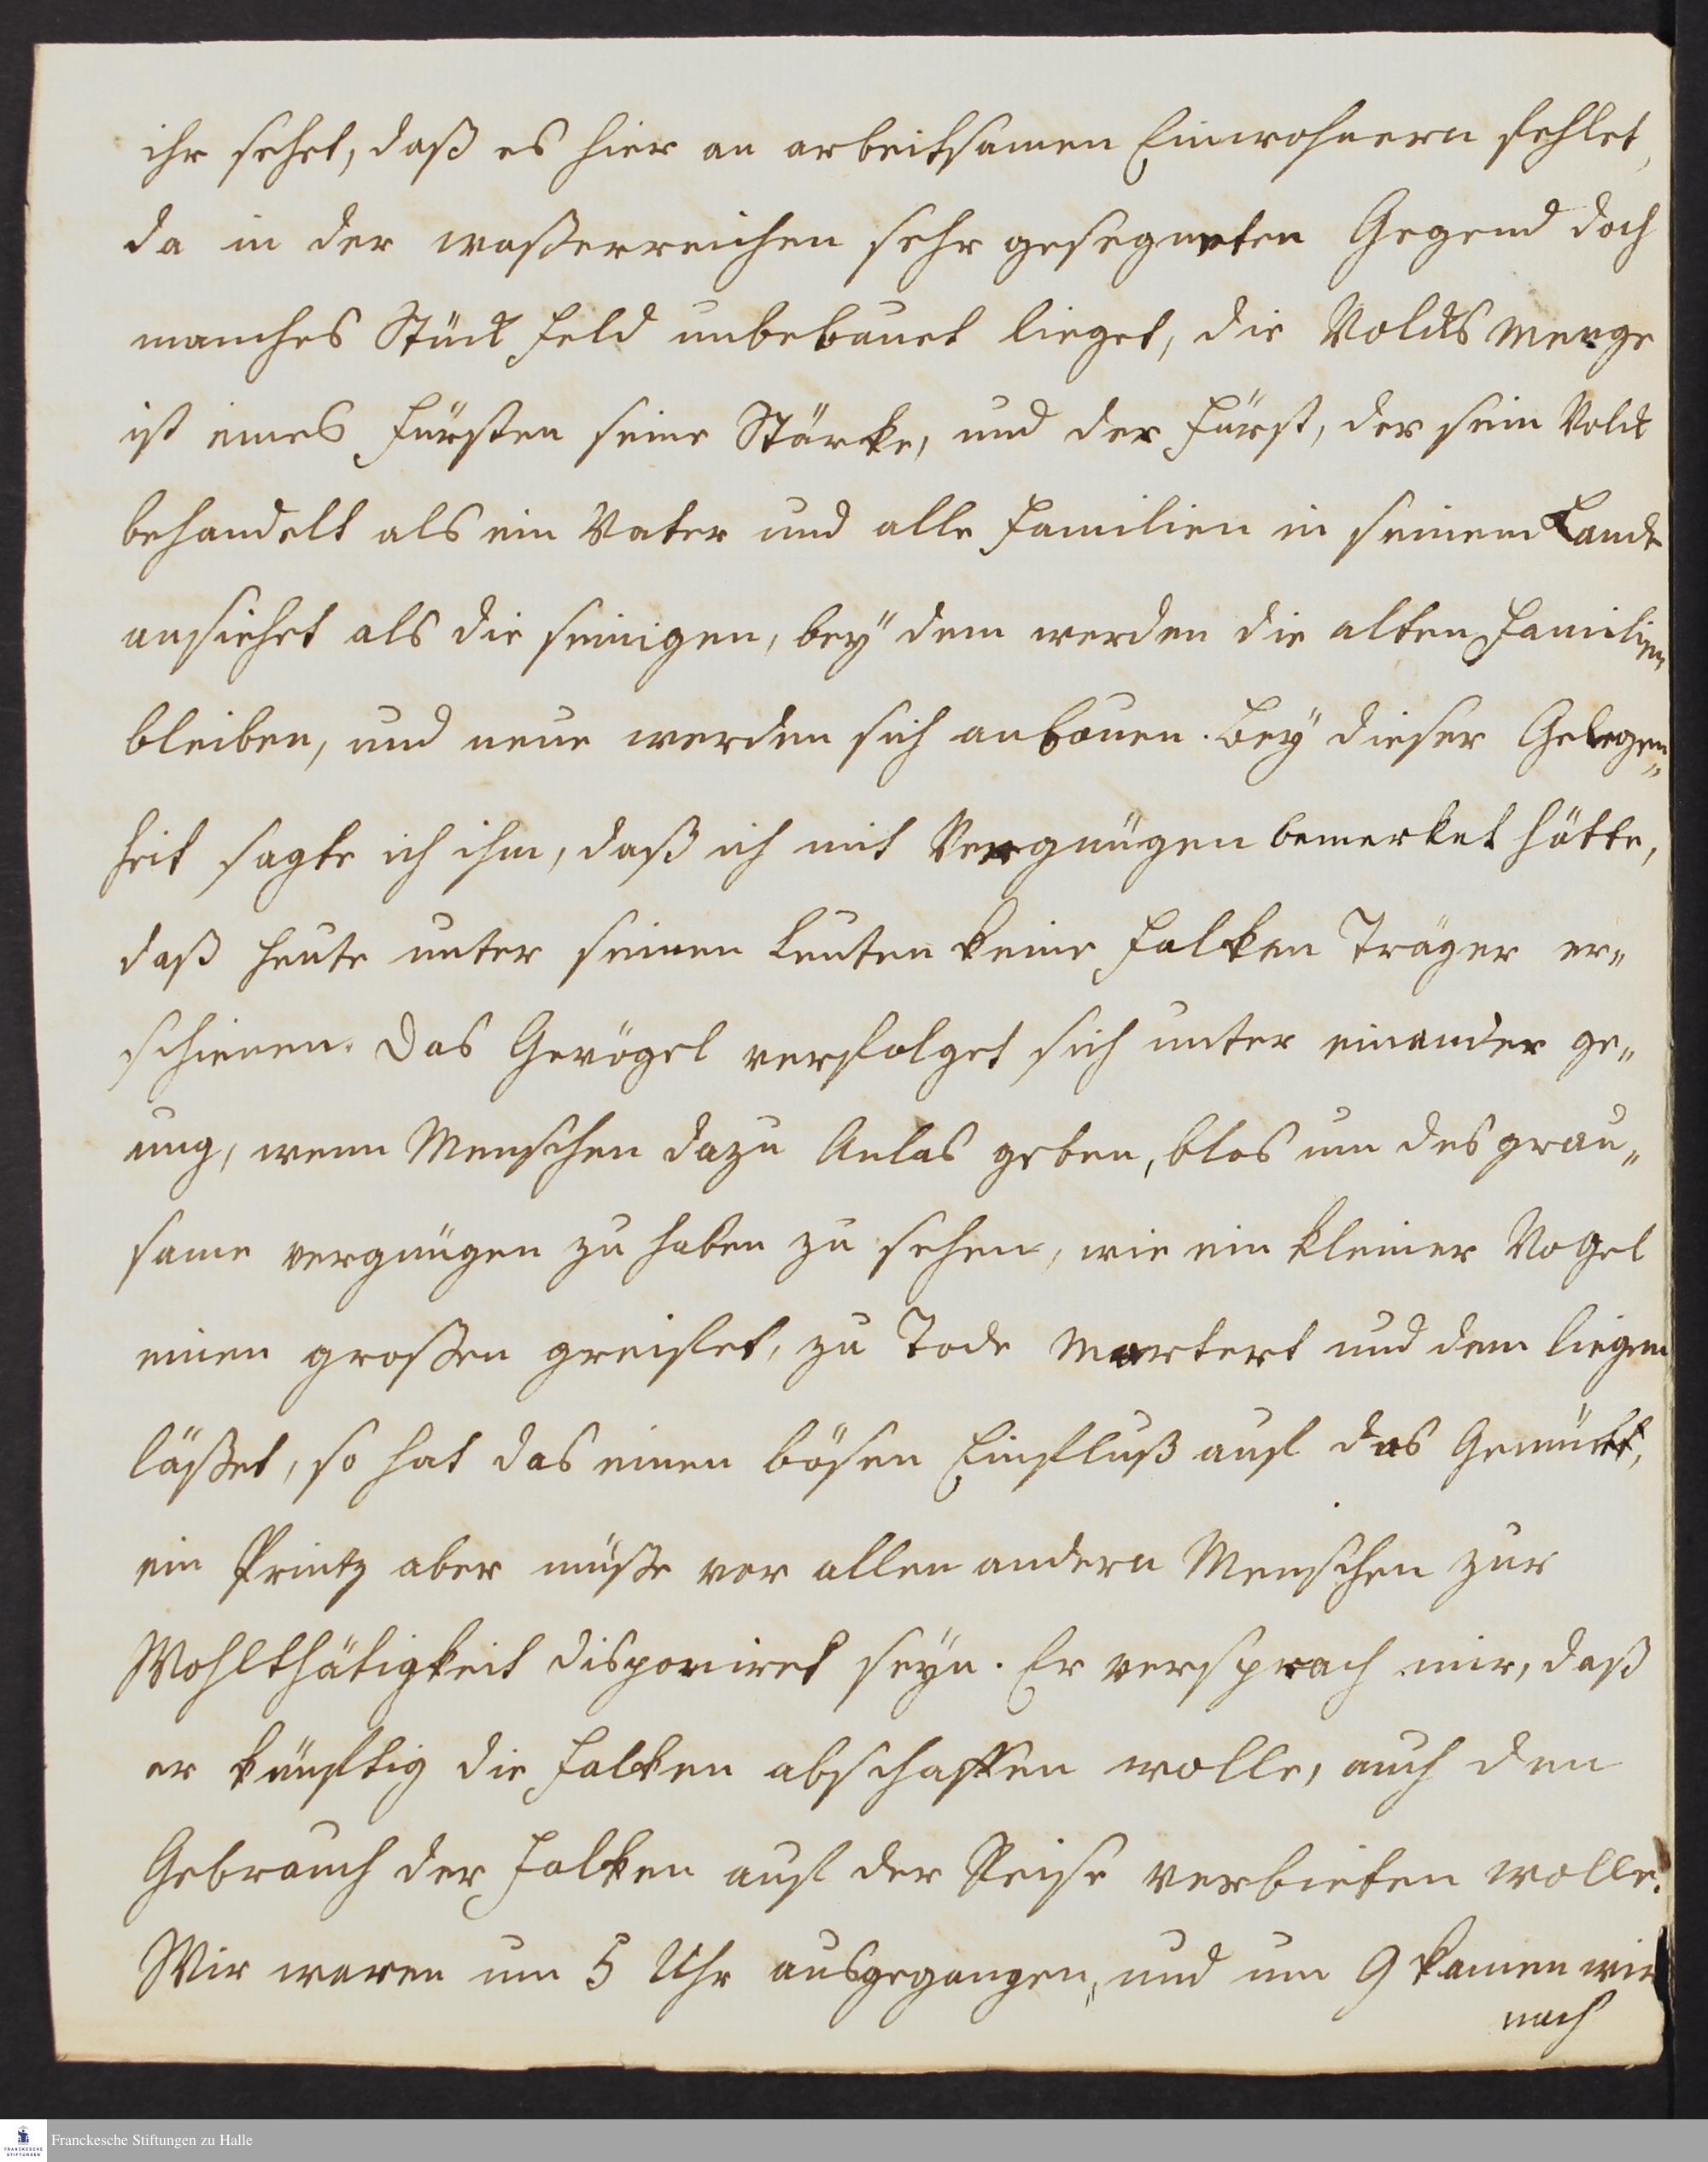 ihr sehet, daß es hier an arbeitsamen Einwohnern fehlet,
da in der waßerreichen sehr gesegneten Gegend doch
manches Stück Feld unbebauet lieget, die Volcks Menge
ist eines Fürsten seine Stärcke, und der Fürst, der sein Volck
behandelt als ein Vater und alle Familien in seinem Lande
ansiehet als die seinigen, bey dem werden die alten Familien
bleiben, und neue werden sich anbauen. Bey dieser Gelegen„
heit sagte ich ihm, daß ich mit Vergnügen bemerket hätte,
daß heute unter seinen Leuten keine Falken Träger er„
schienen. Das Gevögel verfolget sich unter einander ge„
nug, wenn Menschen dazu Anlas geben, blos um das grau„
same vergnügen zu haben zu sehen, wie ein kleiner Vogel
einen großen greifet, zu Tode martert und dem liegen
läßet, so hat das einen bösen Einfluß auf das Gemüth,
ein Printz aber müße vor allen andern Menschen zur
Wohlthätigkeit disponiret seyn. Er versprach mir, daß
er künftig die Falken abschaffen wolle, auch den
Gebrauch der Falken auf der Reise verbieten wolle.
Wir waren um 5 Uhr ausgegangen, und um 9 kamen wir
nach
Franckesche Stiftungen zu Halle
FRANCKESCHE
STIFTUNGEN